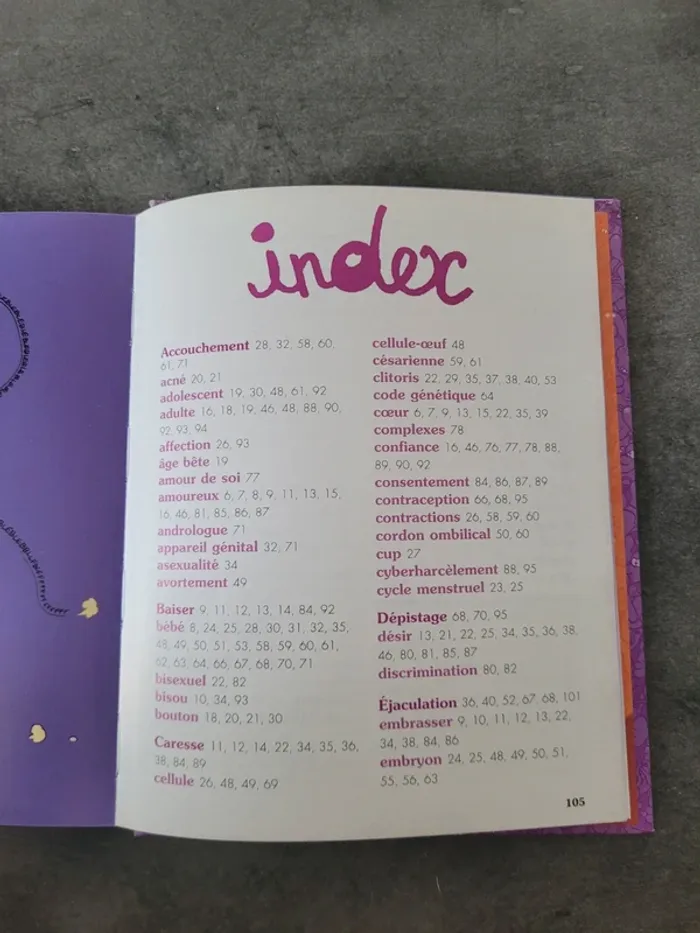 index
Accouchement 28, 32, 58, 60,
61, 71
acné 20, 21
adolescent 19, 30, 48, 61, 92
adulte 16, 18, 19, 46, 48, 88, 90,
92, 93, 94
affection 26, 93
âge bête 19
amour de soi 77
amoureux 6, 7, 8, 9, 11, 13, 15,
16, 46, 81, 85, 86, 87
andrologue 71
appareil génital 32, 71
asexualité 34
avortement 49
Baiser 9, 11, 12, 13, 14, 84, 92
bébé 8, 24, 25, 28, 30, 31, 32, 35,
48, 49, 50, 51, 53, 58, 59, 60, 61,
62, 63, 64, 66, 67, 68, 70, 71
bisexuel 22, 82
bisou 10, 34, 93
bouton 18, 20, 21, 30
Caresse 11, 12, 14, 22, 34, 35, 36,
38, 84, 89
cellule 26, 48, 49, 69
cellule-œuf 48
césarienne 59, 61
clitoris 22, 29, 35, 37, 38, 40, 53
code génétique 64
cœur 6, 7, 9, 13, 15, 22, 35, 39
complexes 78
confiance 16, 46, 76, 77, 78, 88,
89, 90, 92
consentement 84, 86, 87, 89
contraception 66, 68, 95
contractions 26, 58, 59, 60
cordon ombilical 50, 60
cup 27
cyberharcèlement 88, 95
cycle menstruel 23, 25
Dépistage 68, 70, 95
désir 13, 21, 22, 25, 34, 35, 36, 38,
46, 80, 81, 85, 87
discrimination 80, 82
Éjaculation 36, 40, 52, 67, 68, 101
embrasser 9, 10, 11, 12, 13, 22,
34, 38, 84, 86
embryon 24, 25, 48, 49, 50, 51,
55, 56, 63
105